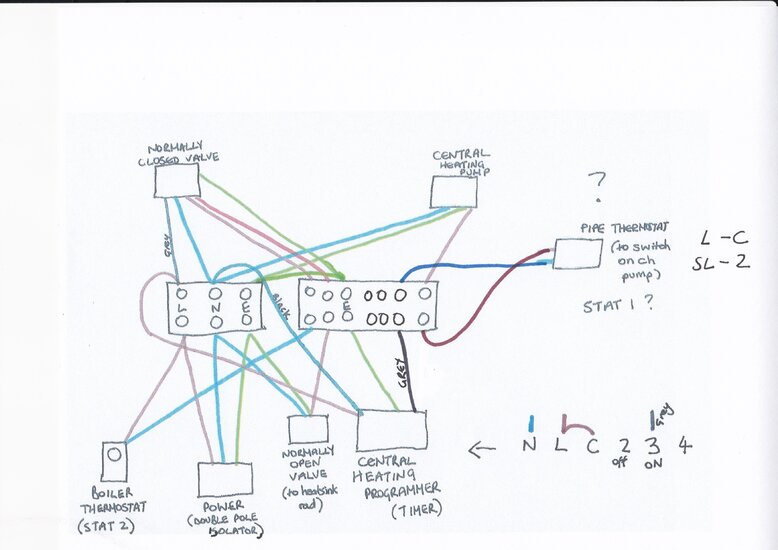 NORMALLY
CLOSED VALVE
CENTRAL
HEATING
PUMP
?
PIPE THERMOSTAT
(to switch
on ch
pump)
L - C
SL - 2
STAT 1 ?
GREY
Black
L
N
E
E
GREY
BOILER
THERMOSTAT
(STAT 2)
POWER
(DOUBLE POLE
ISOLATOR)
NORMALLY
OPEN
VALVE
(to heatsink
rad)
CENTRAL
HEATING
PROGRAMMER
(TIMER)
← N L C 2 3 4
Grey
off
ON